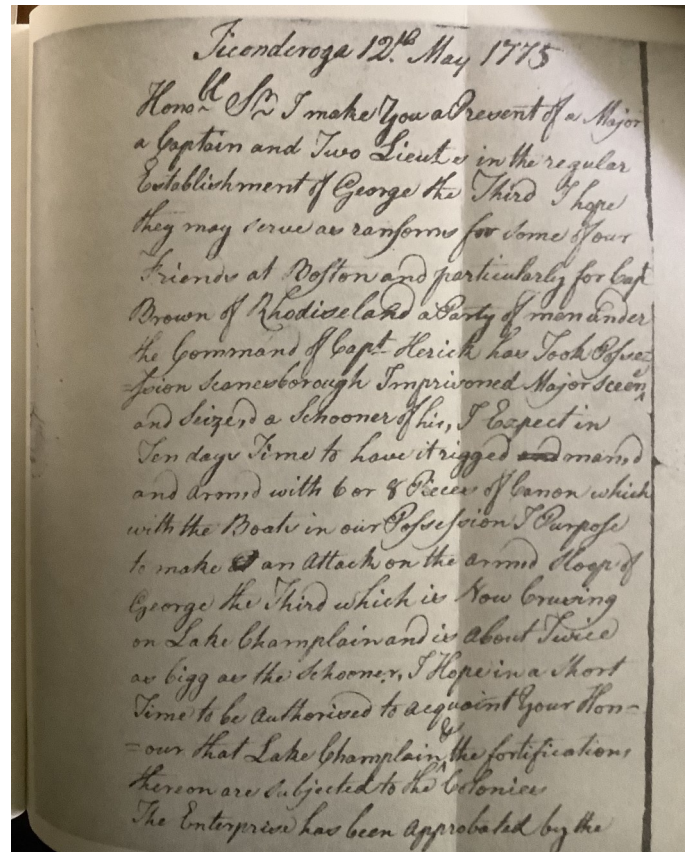 Ticonderoga 12th. May 1775
Honobll Sr. I make You a Present of a Major
a Captain and Two Lieuts in the regular
Establishment of George the Third I hope
they may serve as ransoms for some of our
Friends at Boston and particularly for Capt
Brown of Rhodiseland a Party of men under
the Command of Capt. Herick has Took Posse=
=ssion Scanesborough Imprisoned Major Sceen
and Seize,d a Schooner of his, I Expect in
Ten days Time to have it rigged and man,d
and arm,d with 6 or 8 Pieces of Canon which
with the Boats in our Possession I Purpose
to make an Attack on the arm,d Sloop of
George the Third which is Now Cruising
on Lake Champlain and is about Twice
as bigg as the Schooner, I Hope in a Short
Time to be Authorised to acquaint Your Hon=
=our that Lake Champlain & the fortifications
thereon are subjected to the Colonies
The Enterprise has been approbated by the